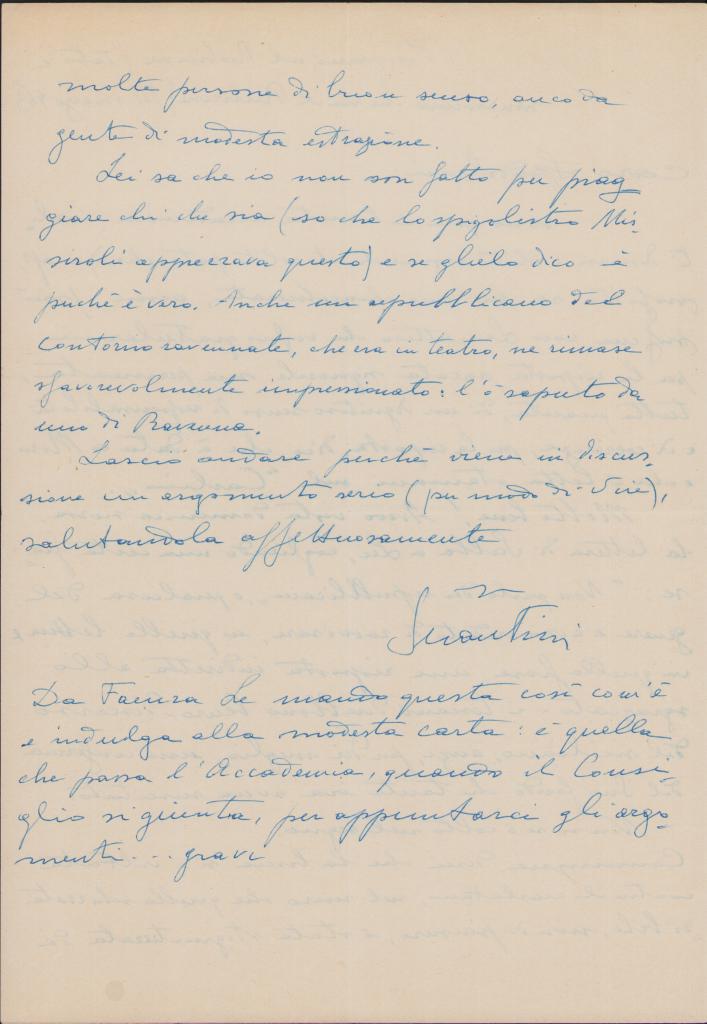 molte persone di buon senso, anco da
gente di modesta estrazione.
Lei sa che io non son fatto per piag
giare chi che sia (so che lo spigolistro Mis-
siroli apprezzava questo) e se glielo dico è
perchè è vero. Anche un repubblicano del
contorno ravennate, che era in teatro, ne rimase
sfavorevolmente impressionato: l'ò saputo da
uno di
Lascio andare perchè viene in discus-
sione un argomento serio (per modo di dire),
salutandola affettuosamente
Da Faenza Le mando questa così com'è
e indulga alla modesta carta: è quella
che passa l'Accademia, quando il Consi-
glio si giunta, per appuntarci gli argo-
menti... gravi